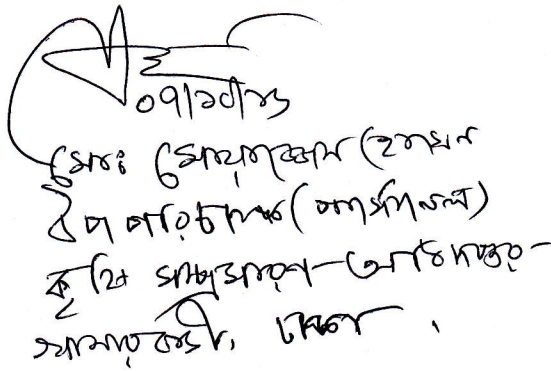 ০৭/১০/২১
মোঃ মোয়াজ্জেম হোসেন
উপ পরিচালক (পার্সোনেল)
কৃষি সম্প্রসারণ অধিদপ্তর
খামারবাড়ী, ঢাকা ।